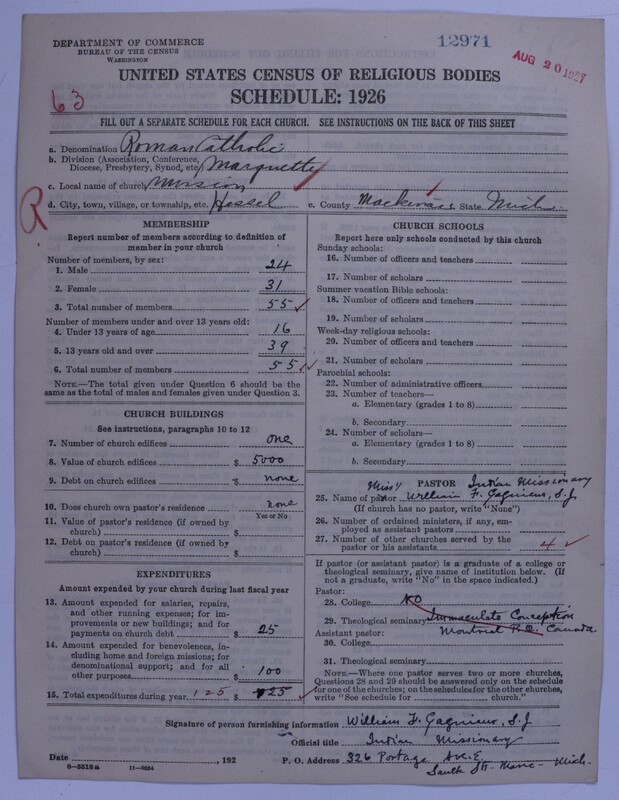 DEPARTMENT OF COMMERCE
BUREAU OF THE CENSUS
WASHINGTON
12971
AUG 20 1927
UNITED STATES CENSUS OF RELIGIOUS BODIES
63
SCHEDULE: 1926
FILL OUT A SEPARATE SCHEDULE FOR EACH CHURCH. SEE INSTRUCTIONS ON THE BACK OF THIS SHEET
a. Denomination Roman Catholic
b. Division (Association, Conference, Diocese, Presbytery, Synod, etc.) Marquette
c. Local name of church Mission
R
d. City, town, village, or township, etc. Hessel e. County Mackinac f. State Mich
MEMBERSHIP
Report number of members according to definition of member in your church
Number of members, by sex:
1. Male 24
2. Female 31
3. Total number of members 55
Number of members under and over 13 years old:
4. Under 13 years of age 16
5. 13 years old and over 39
6. Total number of members 55
NOTE.—The total given under Question 6 should be the same as the total of males and females given under Question 3.
CHURCH BUILDINGS
See instructions, paragraphs 10 to 12
7. Number of church edifices one
8. Value of church edifices $ 5000
9. Debt on church edifices $ none
10. Does church own pastor's residence none
Yes or No
11. Value of pastor's residence (if owned by church) $
12. Debt on pastor's residence (if owned by church) $
EXPENDITURES
Amount expended by your church during last fiscal year
13. Amount expended for salaries, repairs, and other running expenses; for improvements or new buildings; and for payments on church debt $ 25
14. Amount expended for benevolences, including home and foreign missions; for denominational support; and for all other purposes $ 100
15. Total expenditures during year 125 $ 125
CHURCH SCHOOLS
Report here only schools conducted by this church
Sunday schools:
16. Number of officers and teachers
17. Number of scholars
Summer vacation Bible schools:
18. Number of officers and teachers
19. Number of scholars
Week-day religious schools:
20. Number of officers and teachers
21. Number of scholars
Parochial schools:
22. Number of administrative officers
23. Number of teachers—
a. Elementary (grades 1 to 8)
b. Secondary
24. Number of scholars—
a. Elementary (grades 1 to 8)
b. Secondary
Miss'y PASTOR Indian Missionary
25. Name of pastor William F. Gagnieur, S.J
(If church has no pastor, write "None")
26. Number of ordained ministers, if any, employed as assistant pastors
27. Number of other churches served by the pastor or his assistants 4
If pastor (or assistant pastor) is a graduate of a college or theological seminary, give name of institution below. (If not a graduate, write "No" in the space indicated.)
Pastor:
28. College NO
29. Theological seminary Immaculate Conception
Assistant pastor: Montreal P.Q. Canada
30. College
31. Theological seminary
NOTE.—Where one pastor serves two or more churches, Questions 28 and 29 should be answered only on the schedule for one of the churches; on the schedules for the other churches, write "See schedule for church."
Signature of person furnishing information William F. Gagnieur, S.J
Official title Indian Missionary
Date , 192 P. O. Address 326 Portage Ave. E
Sault Ste Marie - Mich.
8—5518a 11—9554